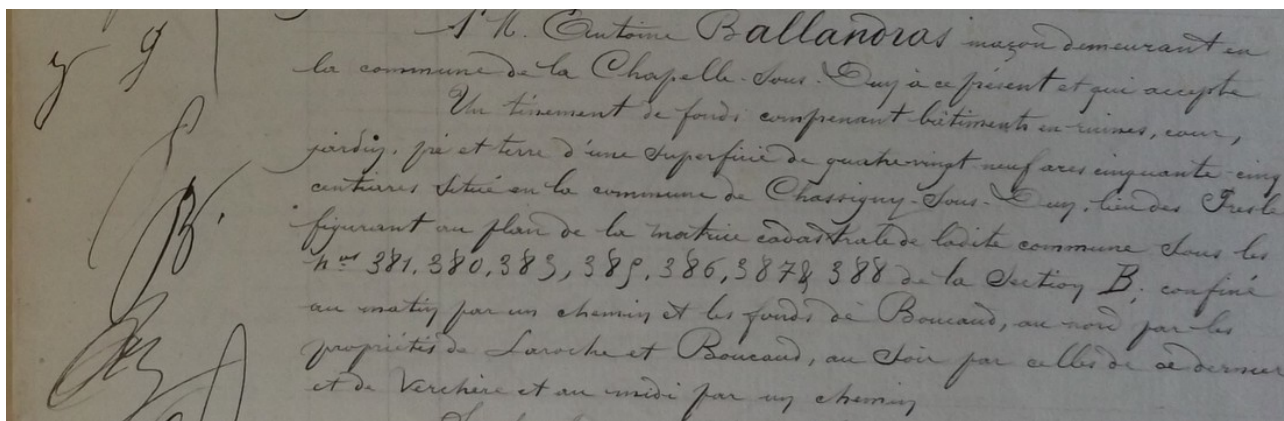 A M. Antoine Ballandras maçon demeurant en
la commune de la Chapelle-sous-Duy à ce présent et qui accepte
Un tènement de fonds comprenant bâtiments en ruines, cour,
jardin, pré et terre d'une superficie de quatre-vingt neuf ares cinquante-cinq
centiares situé en la commune de Chassigny-sous-Duy, lieu des
figurant au plan de la matrice cadastrale de ladite commune sous les
nos 381, 380, 383, 385, 386, 387 & 388 de la Section B; confiné
au matin par un chemin et les fonds de Boucaud, au nord par les
propriétés de Laroche et Boucaud, au soir par celles de ce dernier
et de Verchère et au midi par un chemin